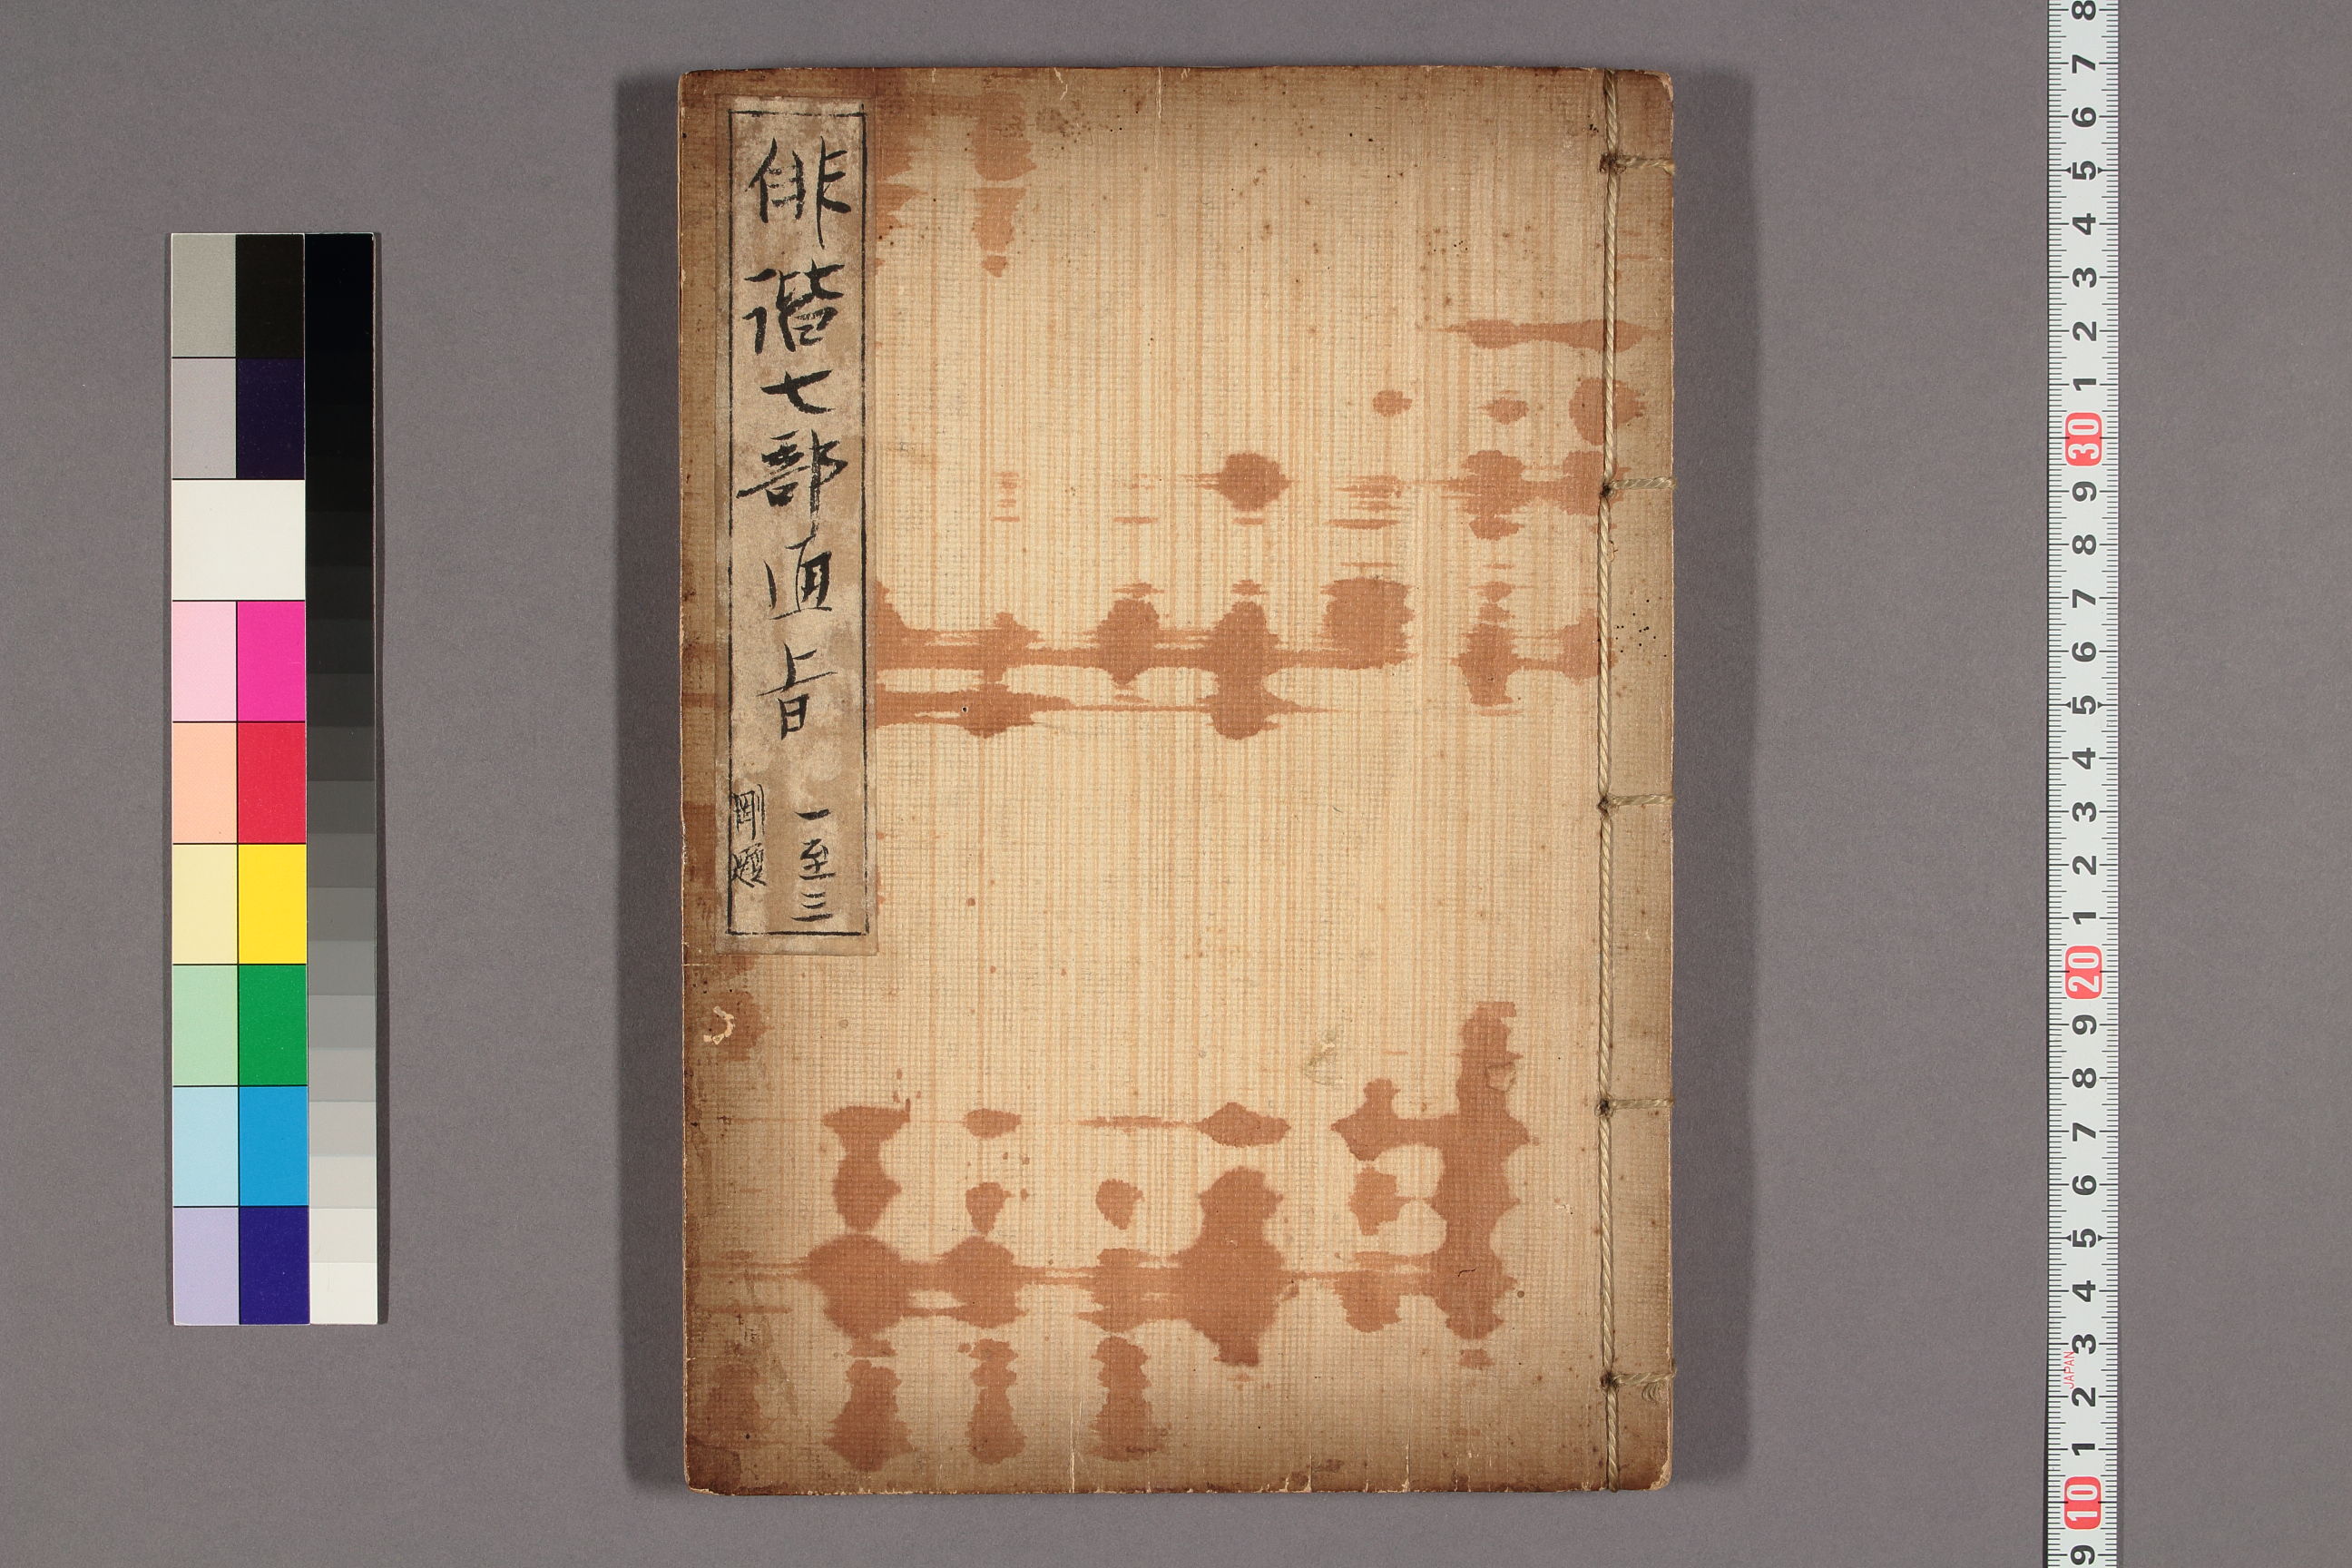 俳諧七部直旨 一至三
剛題
8
7
6
5
4
3
2
1
30
9
8
7
6
5
4
3
2
1
20
9
8
7
6
5
4
3
JAPAN
2
1
10
9